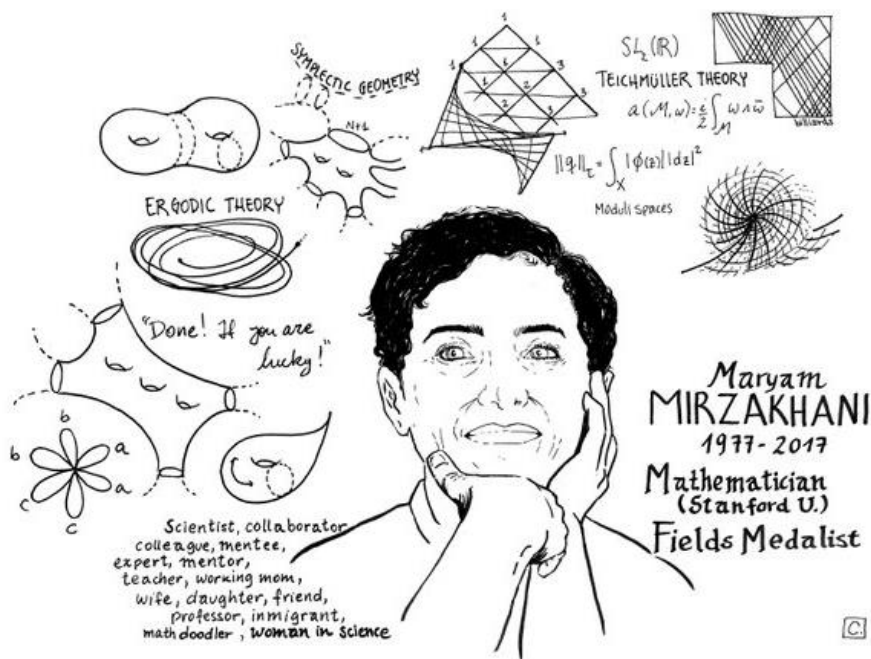 SYMPLECTIC GEOMETRY
N+1
1
1 1
1 6 3
1 6 3
2 2 3
SL₂(ℝ)
TEICHMÜLLER THEORY
a(M,ω)=i/2 ∫_M ω∧ω̄
billiards
||q||_τ = ∫_X |ϕ(z)||dz|²
Moduli spaces
ERGODIC THEORY
"Done! If you are
lucky!"
b
b a
a
c
c
Maryam
MIRZAKHANI
1977-2017
Mathematician
(Stanford U.)
Fields Medalist
Scientist, collaborator
colleague, mentee,
expert, mentor,
teacher, working mom,
wife, daughter, friend,
professor, inmigrant,
math doodler, woman in science
C.